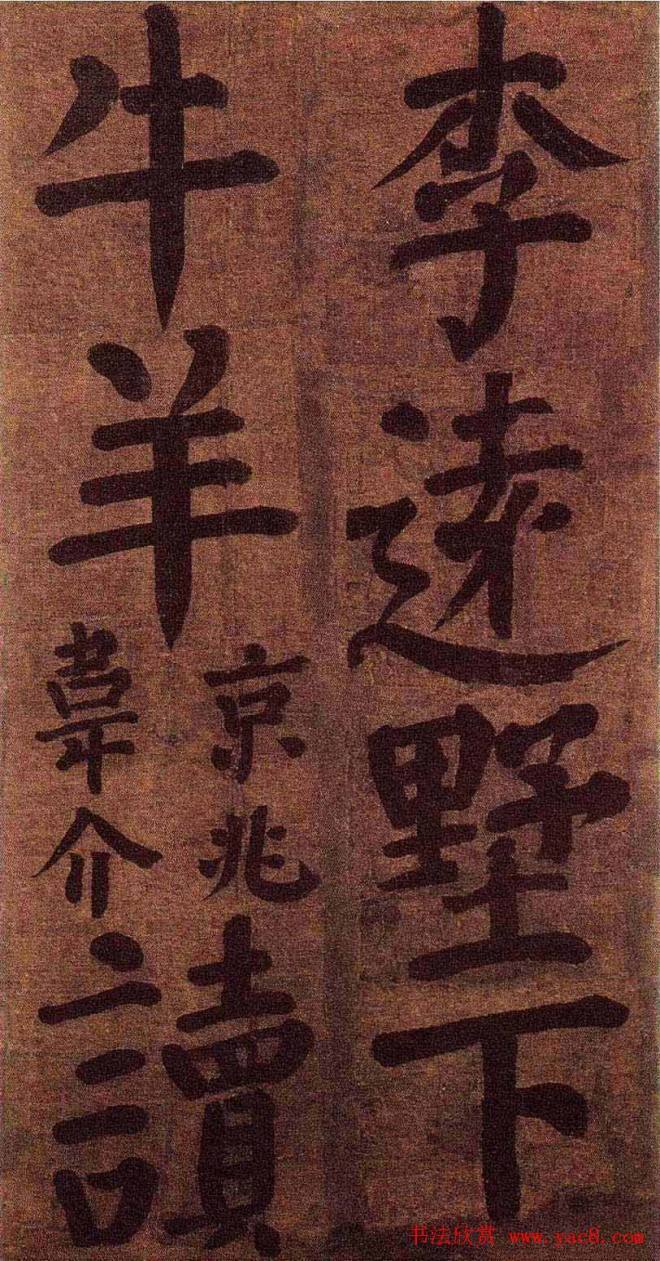 李逺墅下
牛羊
京兆
韋介
讀
书法欣赏 www.yac8.com